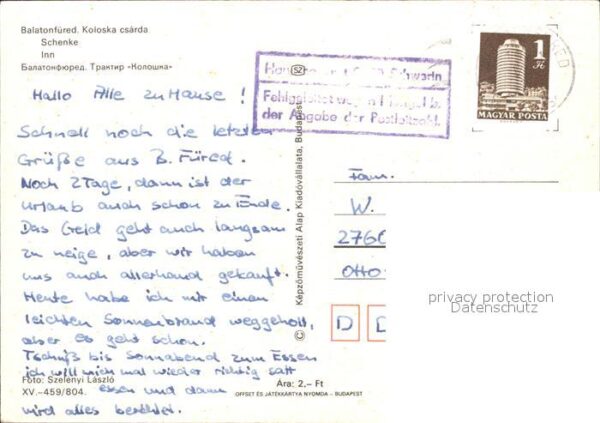 Balatonfüred. Koloska csárda
Schenke
Inn
Балатонфюред. Трактир «Колошка»
Hallo Alle zu Hause !
Schnell noch die letzten
Grüße aus B. Füred.
Noch 2 Tage, dann ist der
Urlaub auch schon zu Ende.
Das Geld geht auch langsam
zu neige, aber wir haben
uns auch allerhand gekauft.
Heute habe ich mir einen
leichten Sonnenbrand weggeholt,
aber es geht schon.
Tschüß bis Sonnabend zum Essen
ich will mich mal wieder richtig satt
essen und dann
wird alles berichtet.
Foto: Szelényi László
XV.–459/804.
Ára: 2,– Ft
OFFSET ÉS JÁTÉKKÁRTYA NYOMDA – BUDAPEST
© Képzőművészeti Alap Kiadóvállalata, Budapest
SZ
Schwerin
Fehlgeleitet wegen Mangel b.
der Angabe der Postleitzahl.
1 Ft
MAGYAR POSTA
Fam.
W.
2760
Otto
D D
privacy protection
Datenschutz